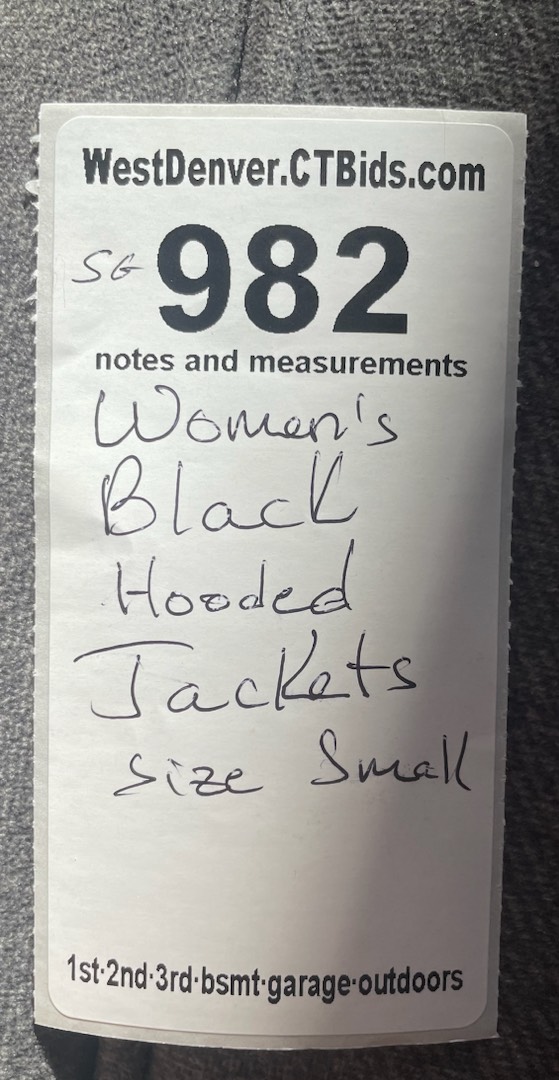 WestDenver.CTBids.com
SG 982
notes and measurements
Women's
Black
Hooded
Jackets
Size Small
1st·2nd·3rd·bsmt·garage·outdoors